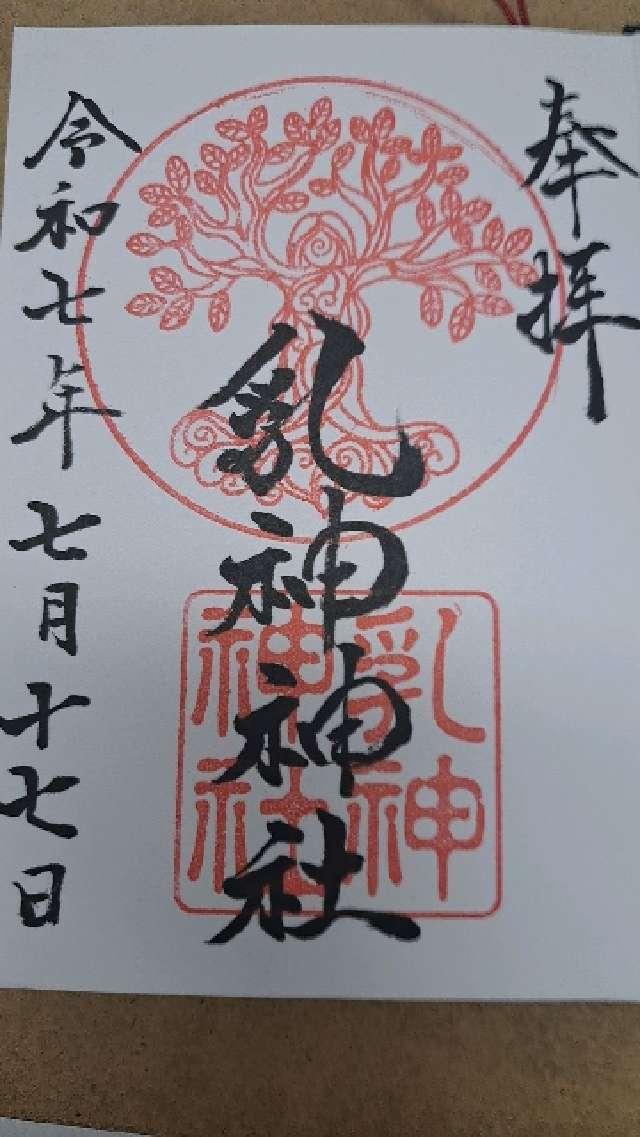 奉拝
乳神神社
乳神
神社
令和七年七月十七日